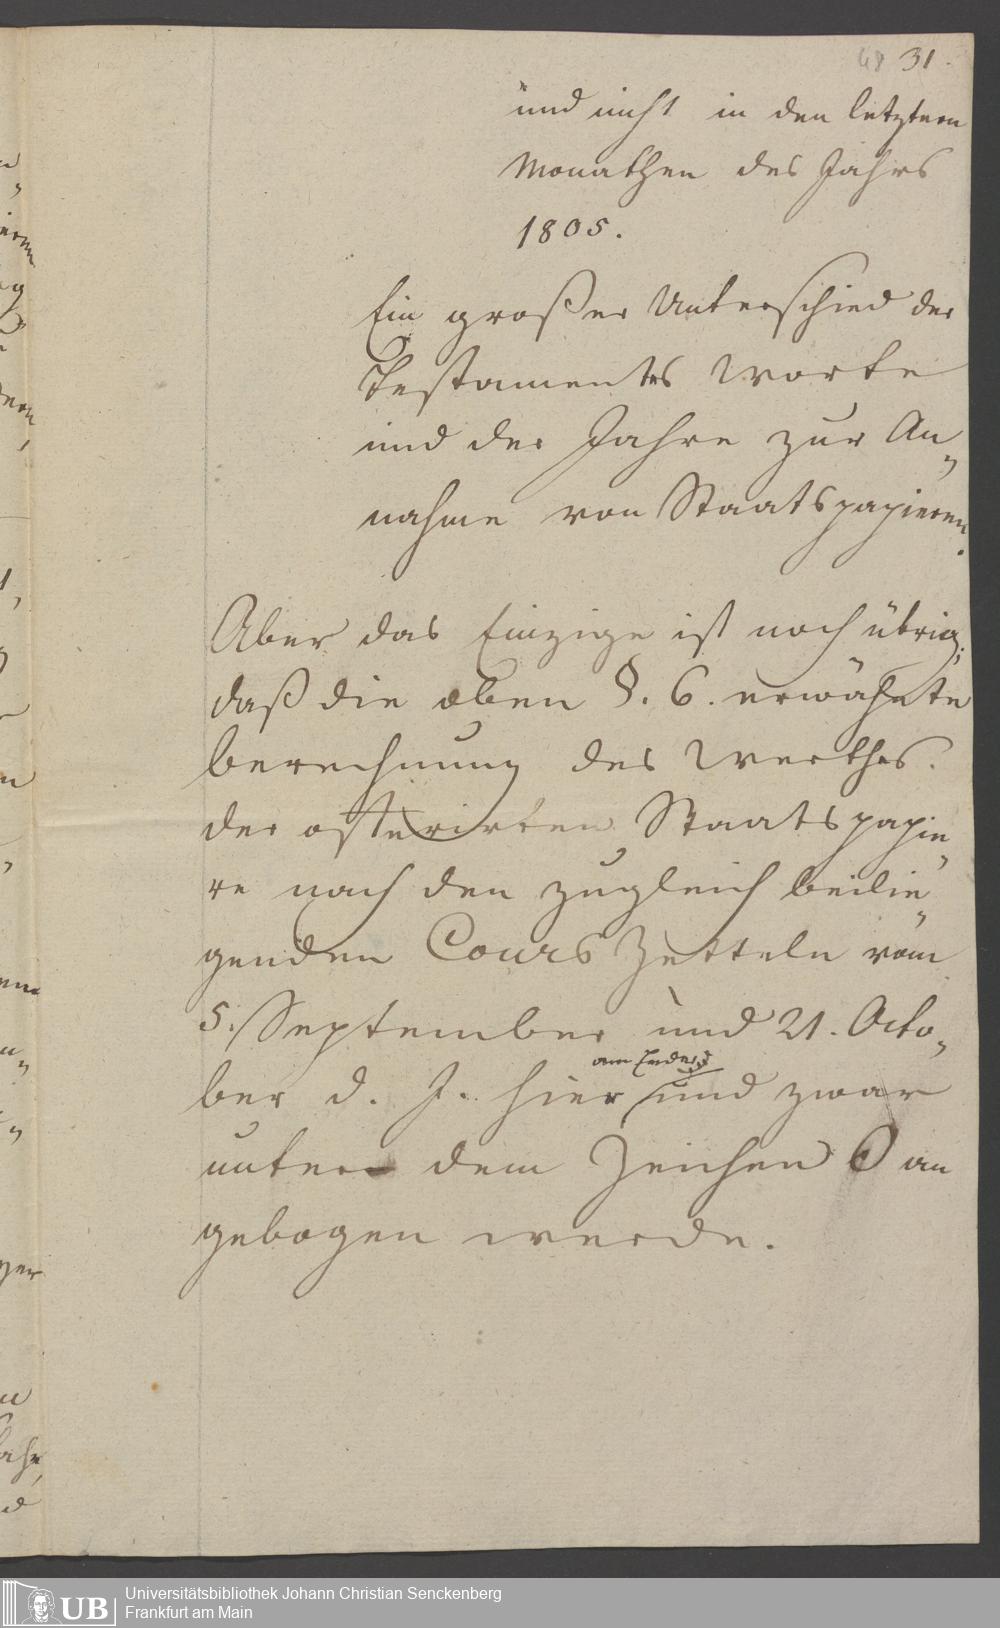 48 31.
und nicht in den letztern
Monathen des Jahrs
1805.
Ein großer Unterschied der
Testaments Worte
und der Jahre zur An„
nahme von Staatspapieren.
Aber das Einzige ist noch übrig,
daß die oben §. 6. erwähnte
berechnung des Werthes
der offerirten Staatspapie„
re nach den zugleich beilie„
genden Cours Zetteln vom
5. September und 21. Octo„
ber d. J. hier am Ende und zwar
unter dem Zeichen an
gebogen werde.
UB
Universitätsbibliothek Johann Christian Senckenberg
Frankfurt am Main